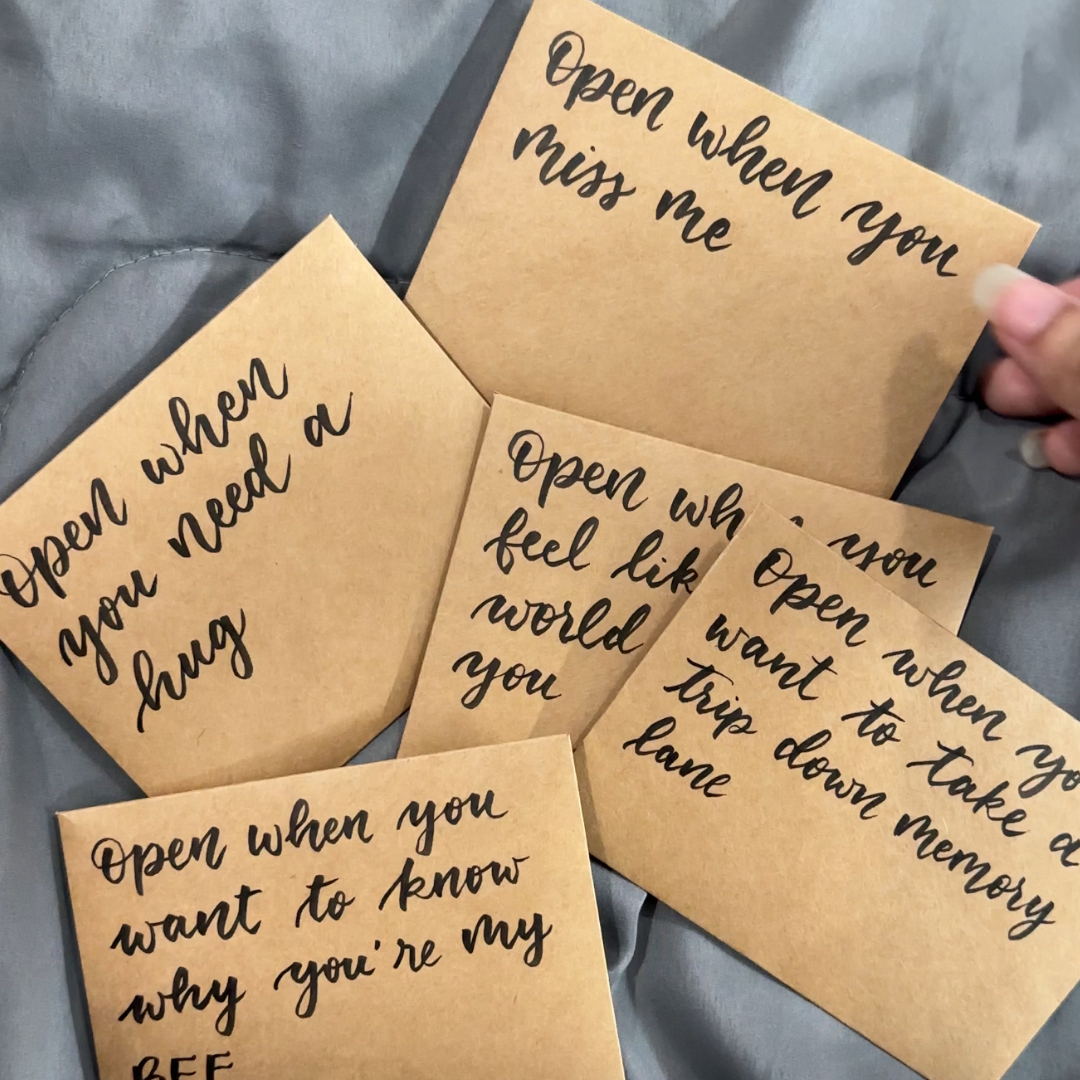 Open when you
miss me
Open when
you need a
hug
Open wh you
feel lik
world
you
Open when yo
want to take a
trip down memory
lane
Open when you
want to know
why you're my
BFF